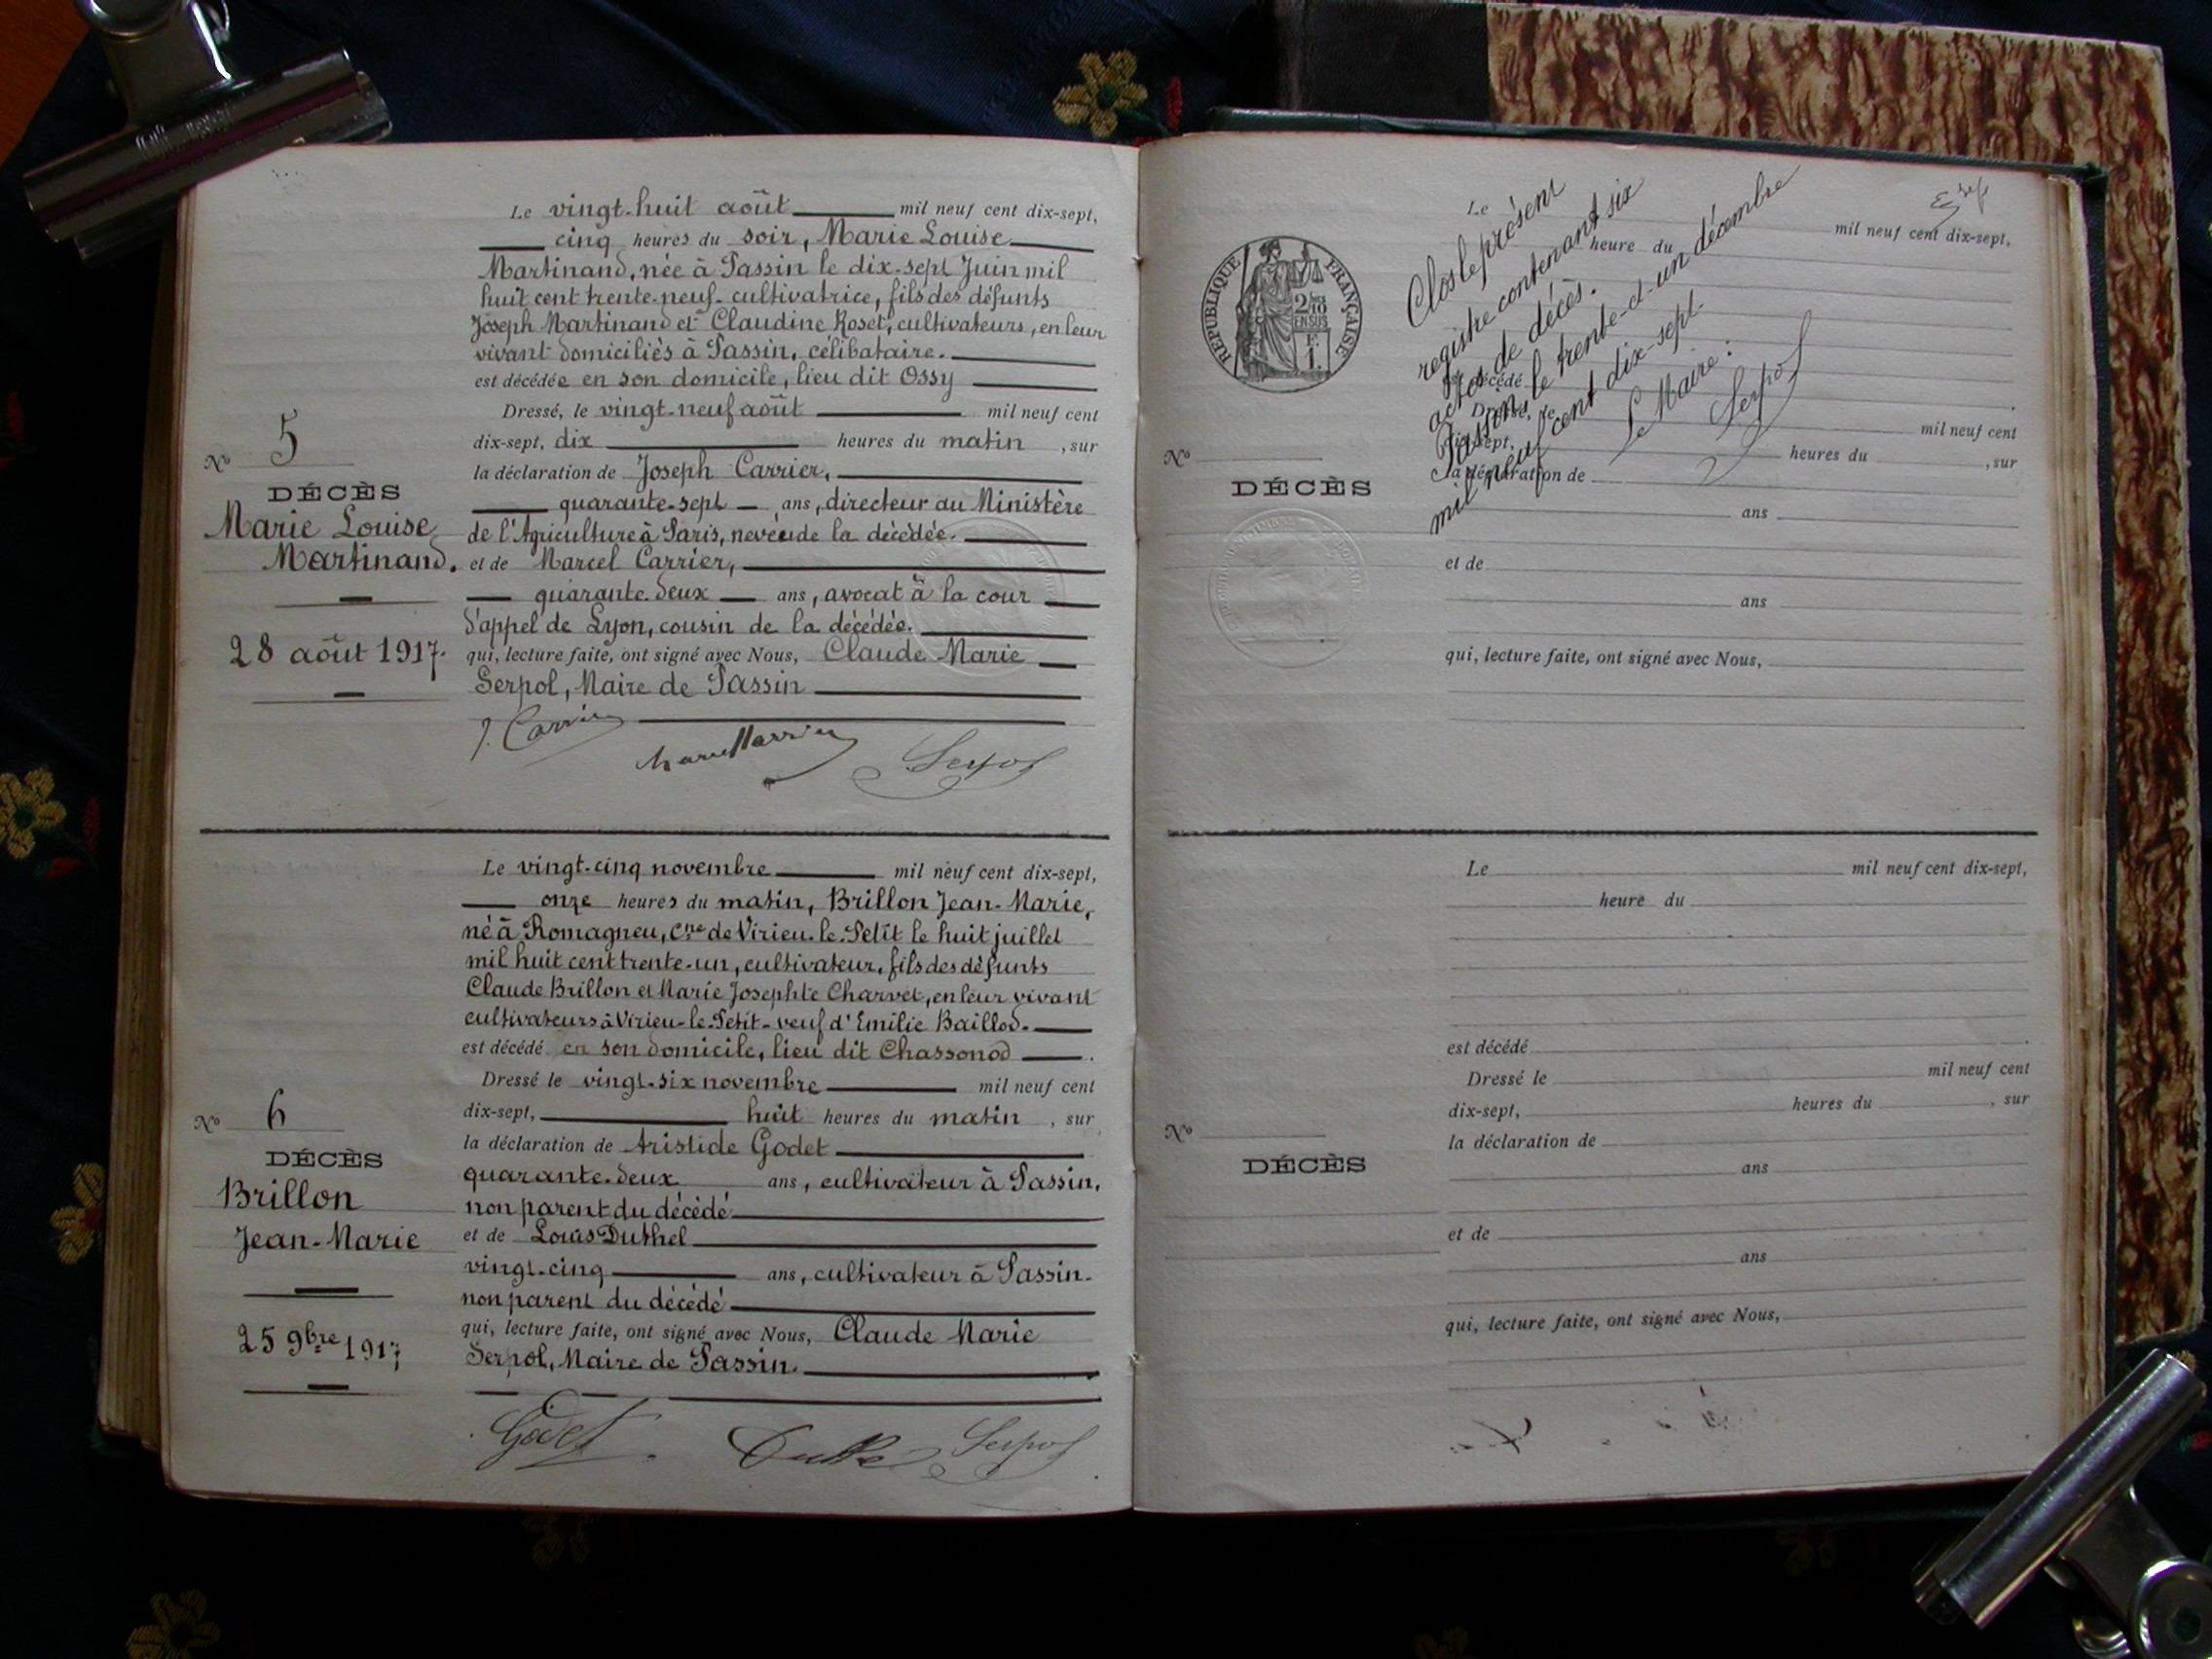 Le vingt-huit août mil neuf cent dix-sept,
cinq heures du soir, Marie Louise
Martinand, née à Passin le dix-sept Juin mil
huit cent trente-neuf- cultivatrice, fils des défunts
Joseph Martinand et Claudine Roset, cultivateurs, en leur
vivant domiciliés à Passin, célibataire.
est décédée en son domicile, lieu dit Ossy
Dressé, le vingt-neuf août mil neuf cent
dix-sept, dix heures du matin , sur
la déclaration de Joseph Carrier,
quarante-sept ans, directeur au Ministère
de l'Agriculture à Paris, neveu de la décédée.
et de Marcel Carrier,
quarante-deux ans, avocat à la cour
d'appel de Lyon, cousin de la décédée.
qui, lecture faite, ont signé avec Nous, Claude Marie
Serpol, Maire de Passin
J. Carrier
Marcel Carrier
Serpol
No 5
DÉCÈS
Marie Louise
Martinand.
28 août 1917.
Le vingt-cinq novembre mil neuf cent dix-sept,
onze heures du matin, Brillon Jean-Marie,
né à Romagneu, Cne de Virieu-le-Petit le huit juillet
mil huit cent trente-un, cultivateur, fils des défunts
Claude Brillon et Marie Josephte Charvet, en leur vivant
cultivateurs à Virieu-le-Petit- veuf d'Emilie Baillod.
est décédé en son domicile, lieu dit Chassonod .
Dressé le vingt-six novembre mil neuf cent
dix-sept, huit heures du matin , sur
la déclaration de Aristide Godet
quarante-deux ans, cultivateur à Passin,
non parent du décédé
et de Louis Duthel
vingt-cinq ans, cultivateur à Passin-
non parent du décédé
qui, lecture faite, ont signé avec Nous, Claude Marie
Serpol, Maire de Passin.
Godet
Serpol
No 6
DÉCÈS
Brillon
Jean-Marie
25 9bre 1917
RÉPUBLIQUE FRANÇAISE
2/10
EN SUS
F.
1.
Clos le présent
registre contenant six
actes de décès.
Passin le trente-et-un décembre
mil neuf cent dix-sept.
Le Maire :
Serpol
Le mil neuf cent dix-sept,
heure du
est décédé .
Dressé, le mil neuf cent
dix-sept, heures du , sur
la déclaration de
ans
et de
ans
qui, lecture faite, ont signé avec Nous,
No
DÉCÈS
Le mil neuf cent dix-sept,
heure du
est décédé .
Dressé le mil neuf cent
dix-sept, heures du , sur
la déclaration de
ans
et de
ans
qui, lecture faite, ont signé avec Nous,
No
DÉCÈS